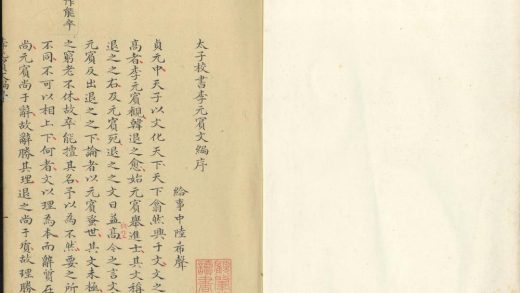 太子校書李元賓文編序
給事中陸希聲
貞元中天子以文化天下天下翕然興于文文之
高者李元賓觀韓退之愈始元賓舉進士其文稱
退之之右及元賓死退之之文日益高今之言文
元賓反出退之之下論者以元賓蚤世其文未極
之窮老不休故卒能擅其名予以為不然要之所
不同不可以相上下何者文以理為本而辭質在
尚元賓尚于辭故辭勝其理退之尚于質故理勝
作能卒